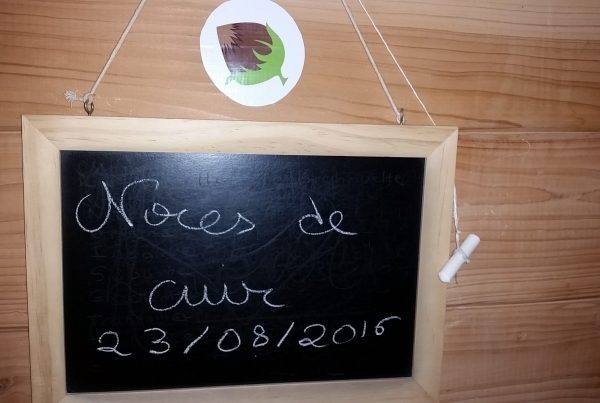 Noces de
cuir
23/08/2016